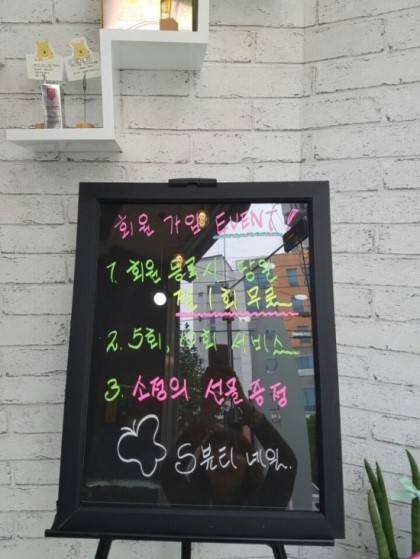 회원 가입 EVENT!
1. 회원 등록시 당월
1회 무료
2. 5회, 10회 서비스
3. 소정의 선물증정
S뷰티 네일.